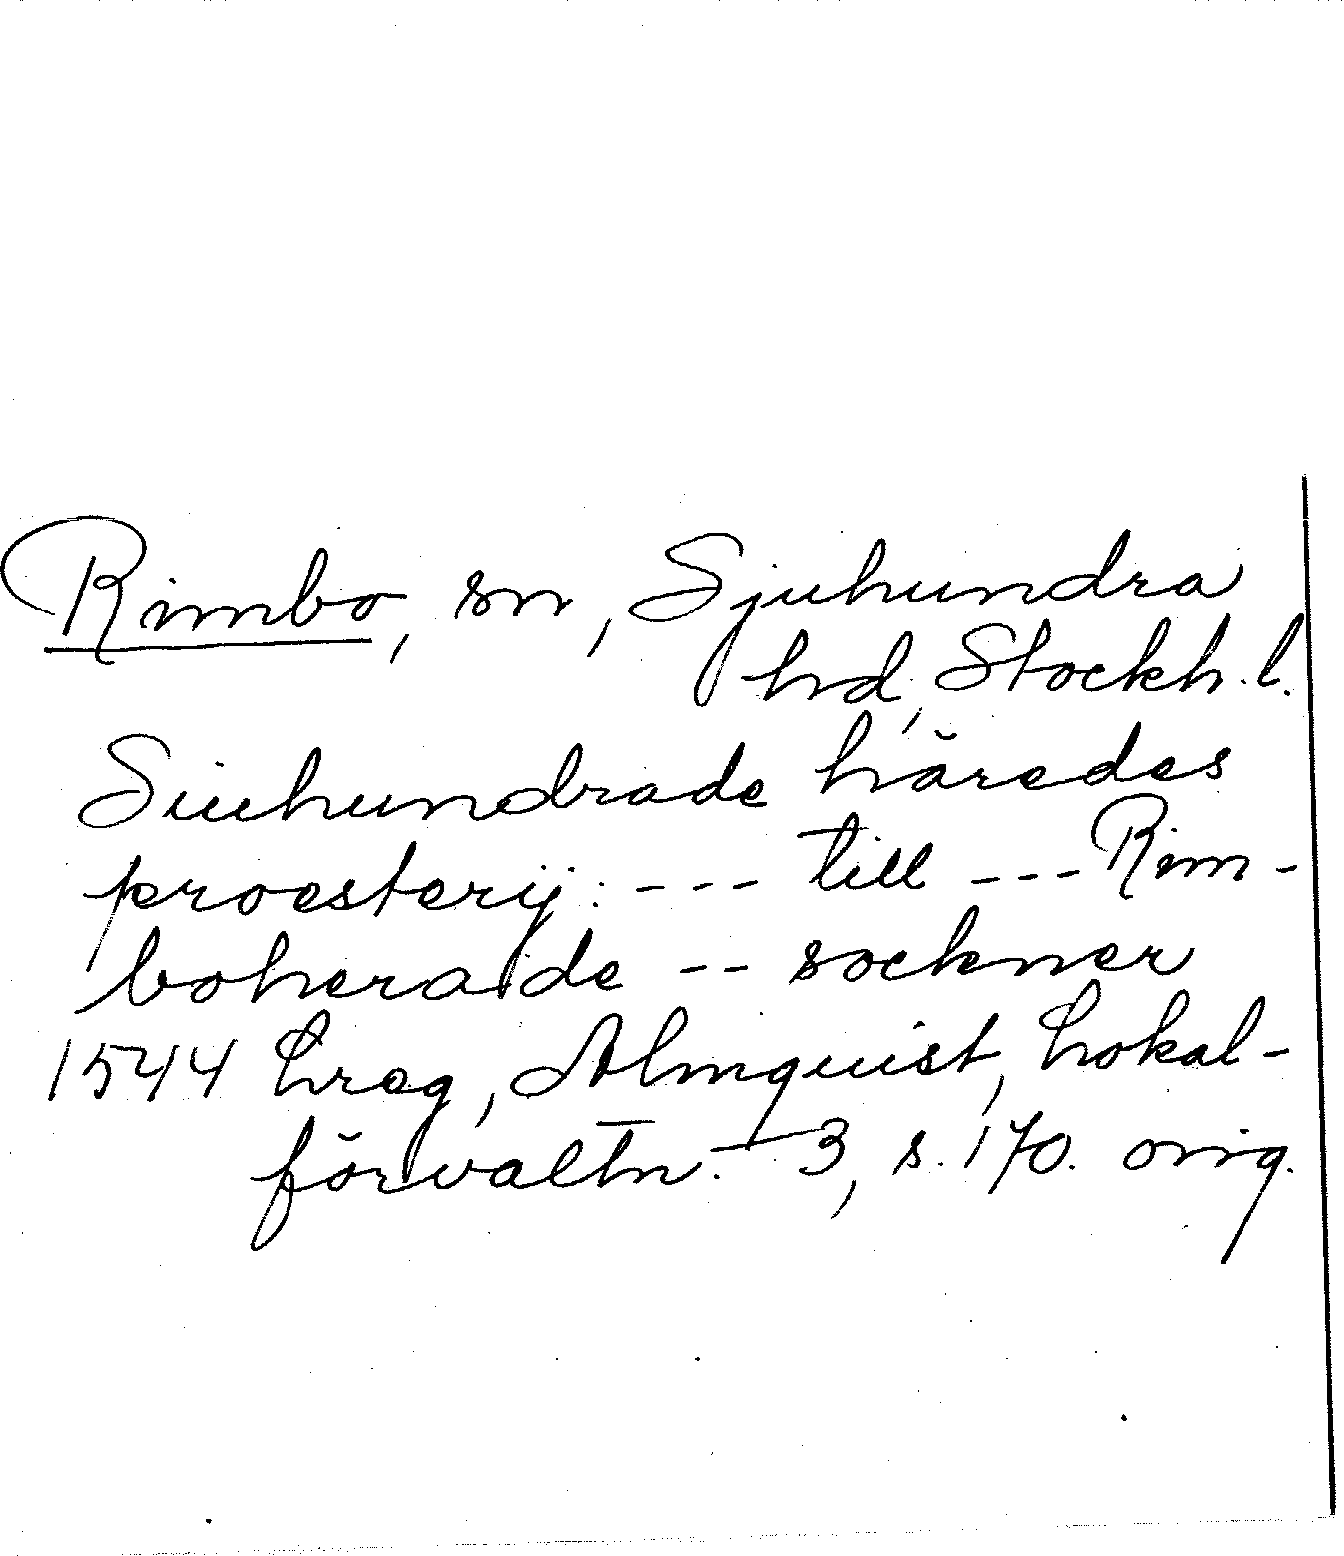 Rimbo, sn, Sjuhundra
hd, Stockh. l.
Siuhundrade häredes
proesterij: --- till --- Rim-
boherade -- sockner
1544 Lreg, Almquist, Lokal-
förvaltn. 3, s. 170. orig.